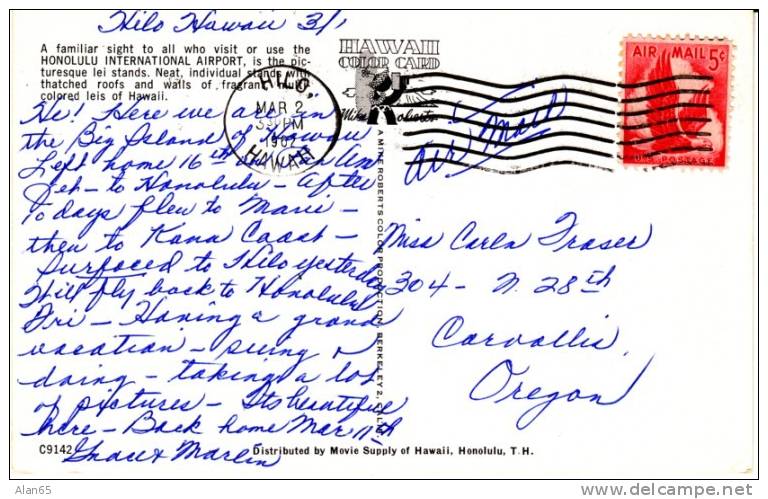 Hilo Hawaii 3/1
A familiar sight to all who visit or use the
HONOLULU INTERNATIONAL AIRPORT, is the pic-
turesque lei stands. Neat, individual stands with
thatched roofs and walls of fragrant multi-
colored leis of Hawaii.
HAWAII
COLOR CARD
Mike Roberts
HILO,
MAR 2
PM
HAWAII
AIR MAIL 5¢
U.S. POSTAGE
Air Mail
Hi! Here we are in
the Big Island of Hawaii
Left home 16th
Feb - to Honolulu - After
10 days flew to Maui -
then to Kona Coast -
to Hilo yesterday
Will fly back to Honolulu
Fri - Having a grand
vacation - seeing &
doing - taking a lot
of pictures - Its beautiful
here - Back home Mar 11th
& Marlin
A MIKE ROBERTS COLOR PRODUCTION, BERKELEY 2, CALIF.
Miss Carla Fraser
304 - N. 28th
Corvallis,
Oregon
C9142
Distributed by Movie Supply of Hawaii, Honolulu, T.H.
Alan65
http://www.delcampe.net